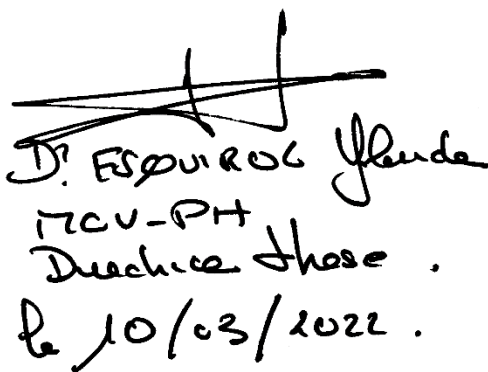 Dr ESQUIROL Yolande
MCU-PH
Directrice these.
le 10/03/2022.